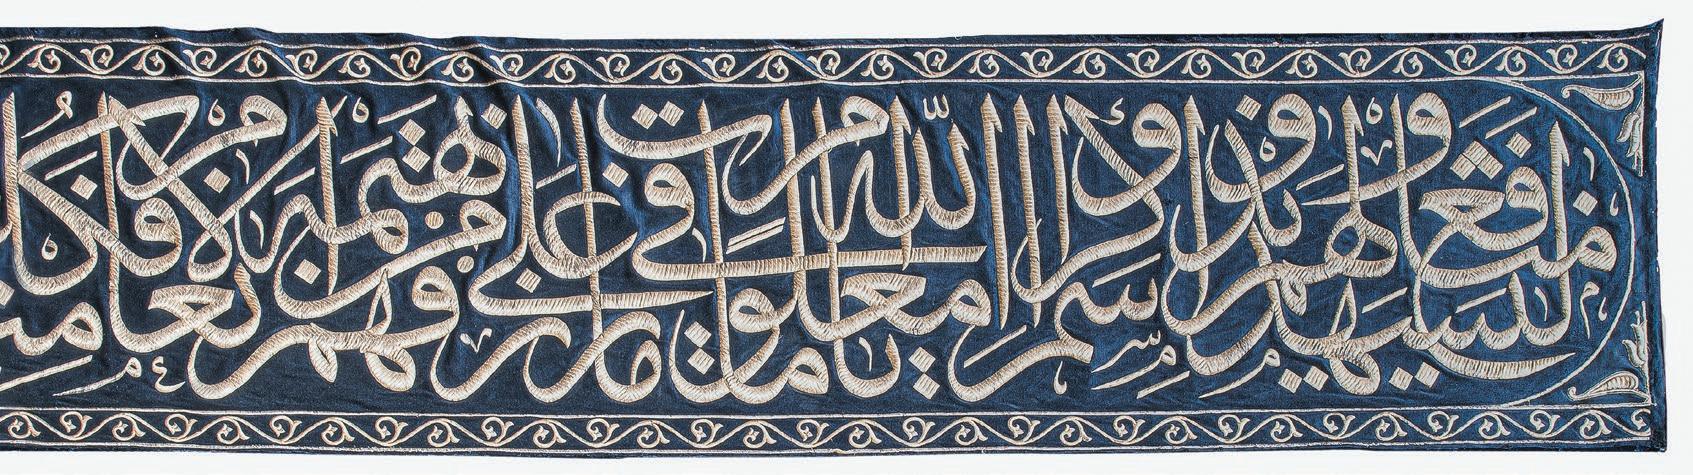 ليشهدوا منافع لهم ويذكروا اسم الله في أيام معلومات على ما رزقهم من بهيمة الأنعام